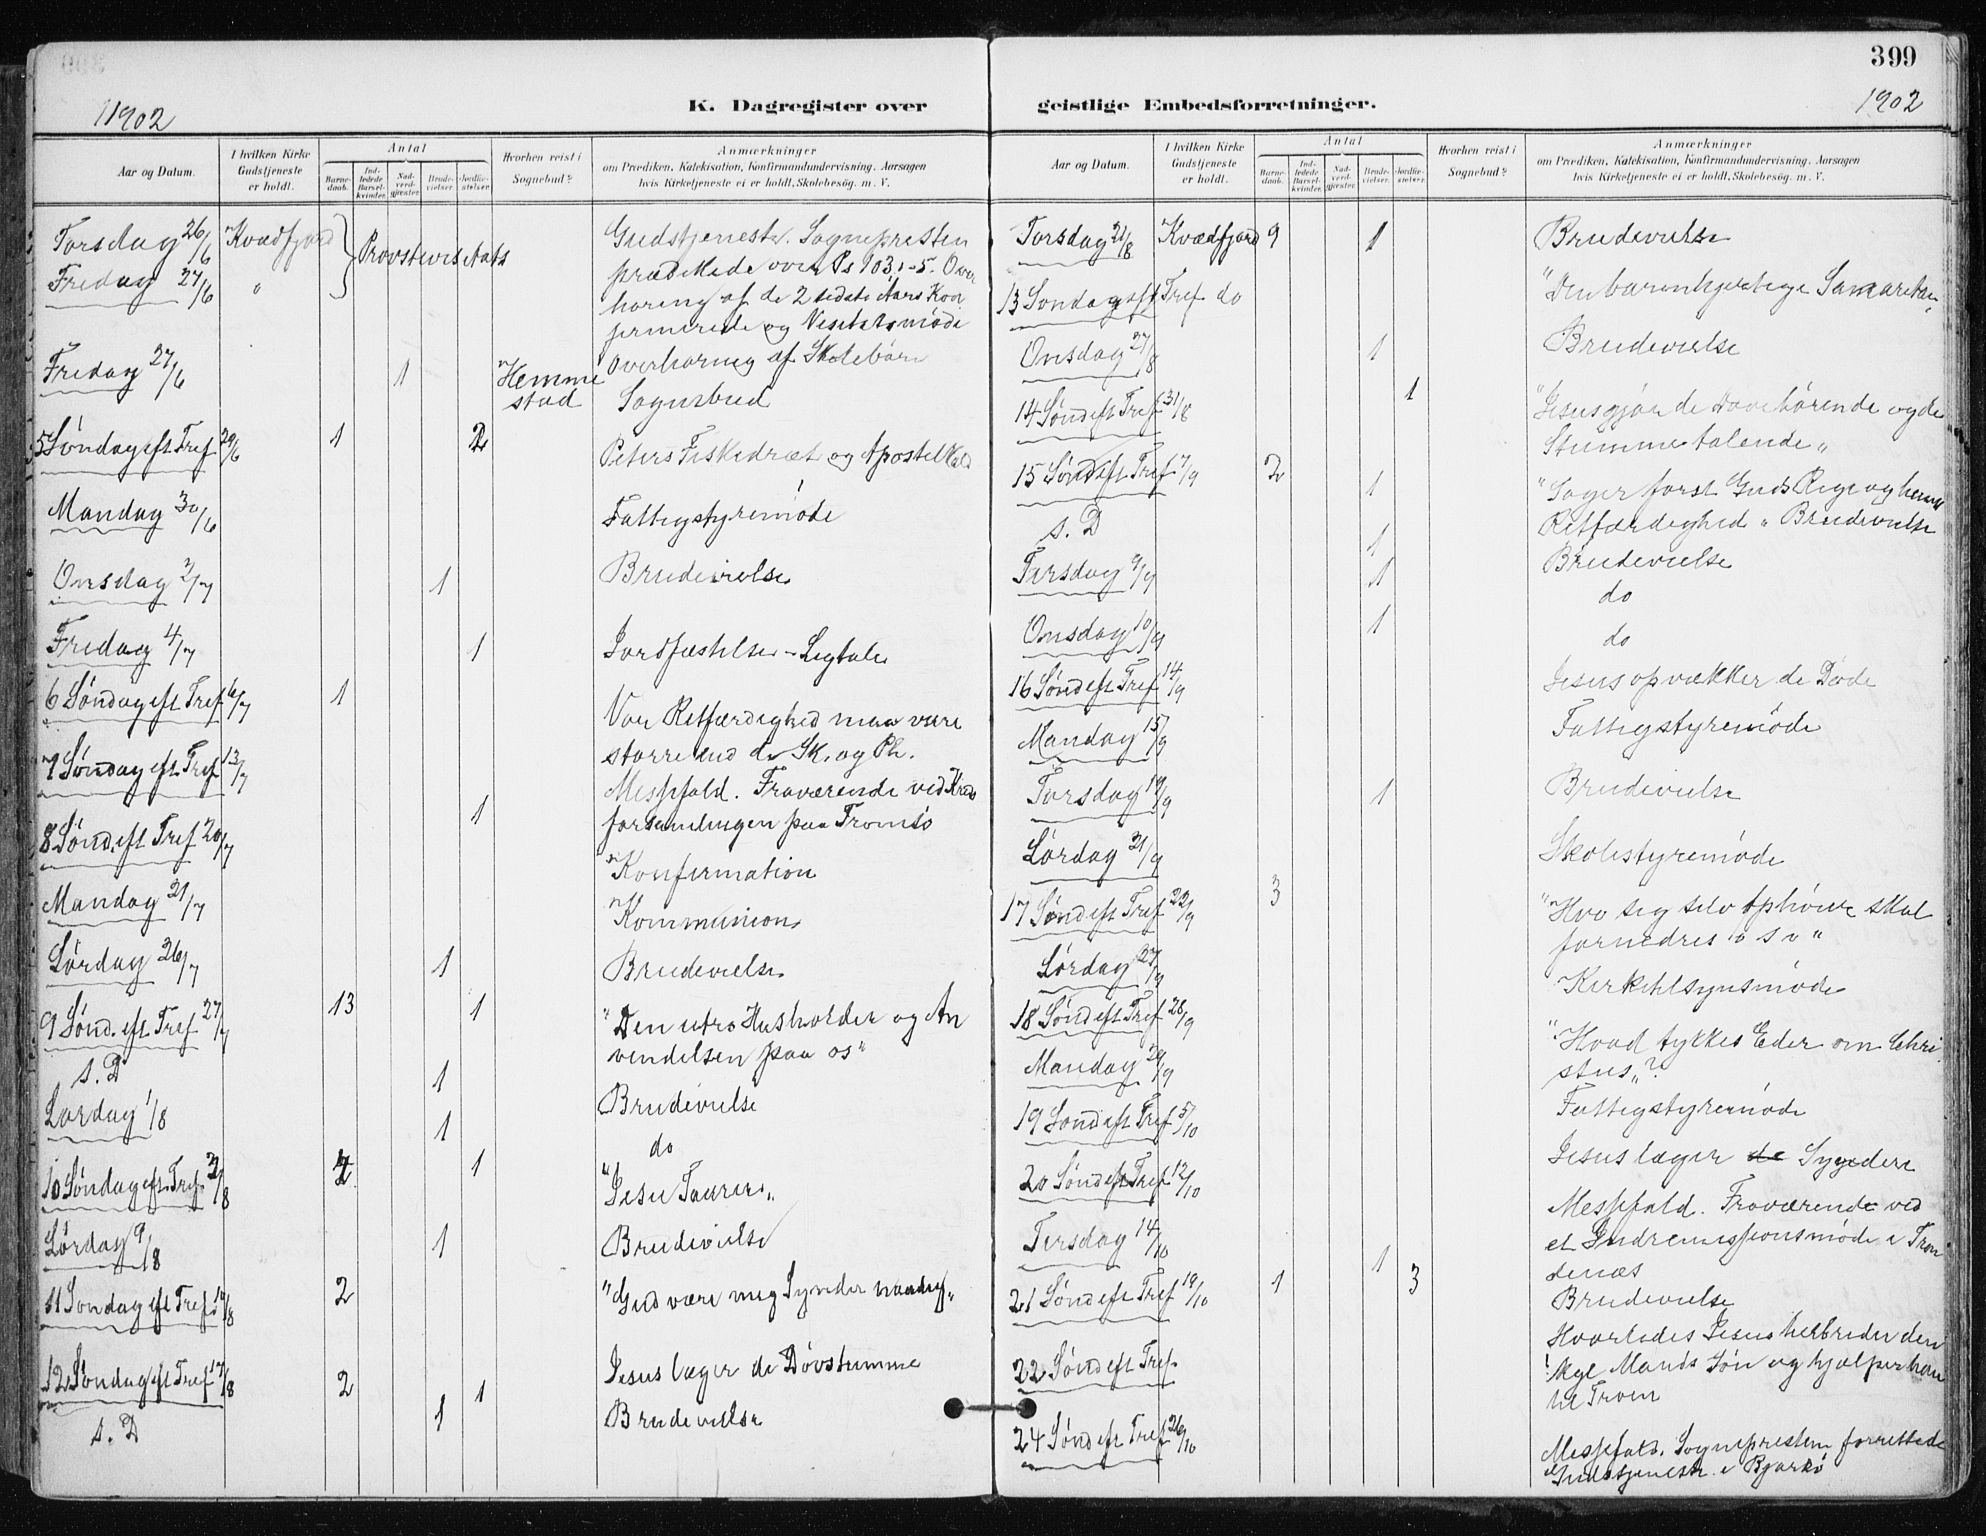 399
1902
K. Dagregister over
geistlige Embedsforretninger.
1902
Aar og Datum.
I hvilken Kirke Gudstjeneste er holdt.
Antal
Barnedaab.
Indledede Barselkvinder.
Nadverdgjester.
Brudevielser.
Jordfæstelser.
Hvorhen reist i Sognebud?
Anmærkninger
om Prædiken, Katekisation, Konfirmandundervisning, Aarsagen
hvis Kirketjeneste ei er holdt, Skolebesøg, m. V.
Torsdag 26/6 Kvædfjord Provstevisitats Gudstjeneste. Sognepresten
Fredag 27/6 " prædikede over Ps 103,1-5. Over
høring af de 2 sidste Aars Kon
firmerede og Visitatsmøde
Fredag 27/6 1 Hemme Overhøring af Skolebørn
stad Sognebud
5 Søndag eft Tref 29/6 1 2 Peters Fiskedræt og Apostelkald
Mandag 30/6 Fattigstyremøde
Onsdag 2/7 1 Brudevielse
Fredag 4/7 1 Jordfæstelse – Ligtale
6 Søndag eft Tref 6/7 1 Vor Retfærdighed maa være
større end de Sk. og Ph.
7 Søndag eft Tref 13/7 Messefald. Fraværende ved Kreds
forsamlingen paa Tromsø
8 Sønd. eft Tref 20/7 1 Konfirmation
Mandag 21/7 Kommunion
Lørdag 26/7 1 Brudevielse
9 Sønd. eft Tref 27/7 13 1 "Den utro Husholder og An
vendelsen paa os"
s. D 1 Brudevielse
Lørdag 1/8 1 do
10 Søndag eft Tref 3/8 1 "Jesu Taarer"
Lørdag 9/8 1 Brudevielse
11 Søndag eft Tref 10/8 2 "Gud være mig Synder naadig"
12 Søndag eft Tref 17/8 2 1 Jesus læger de Døvstumme
s. D 1 Brudevielse
Aar og Datum.
I hvilken Kirke Gudstjeneste er holdt.
Antal
Barnedaab.
Indledede Barselkvinder.
Nadverdgjester.
Brudevielser.
Jordfæstelser.
Hvorhen reist i Sognebud?
Anmærkninger
om Prædiken, Katekisation, Konfirmandundervisning, Aarsagen
hvis Kirketjeneste ei er holdt, Skolebesøg, m. V.
Torsdag 21/8 Kvædfjord 9 1 Brudevielse
13 Søndag eft Tref do "Den barmhjertige Samaritan"
Onsdag 27/8 1 Brudevielse
14 Sønd eft Tref 31/8 1 "Jesus gjør de Døve hørende og de
Stumme talende"
15 Sønd eft Tref 7/9 2 1 "Søger først Guds Rige og hans
Retfærdighed" Brudevielse
s. D 1 Brudevielse
Tirsdag 9/9 1 do
Onsdag 10/9 1 do
16 Sønd eft Tref 14/9 Jesus opvækker de Døde
Mandag 15/9 Fattigstyremøde
Torsdag 1 Brudevielse
Lørdag Skolestyremøde
17 Sønd eft Tref 3 "Hvo sig selv ophøier skal
fornedres o s v"
Lørdag 27/9 Kirketilsynsmøde
18 Sønd eft Tref 28/9 "Hvad tykkes Eder om Chri
stus"?
Mandag 29/9 Fattigstyremøde
19 Sønd eft Tref 5/10 Jesus læger de Syndere
20 Sønd eft Tref 12/10 Messefald. Fraværende ved
et Indremissionsmøde i Tron
denæs
Tirsdag 14/10 1 Brudevielse
21 Sønd eft Tref 19/10 1 3 Hvorledes Jesus helbreder den
kgl Mands Søn og hjælper ham
til Troen
22 Sønd eft Tref.
24 Sønd eft Tref 26/10 Messefald. Sognepresten forrettede
Gudstjeneste i Bjarkø